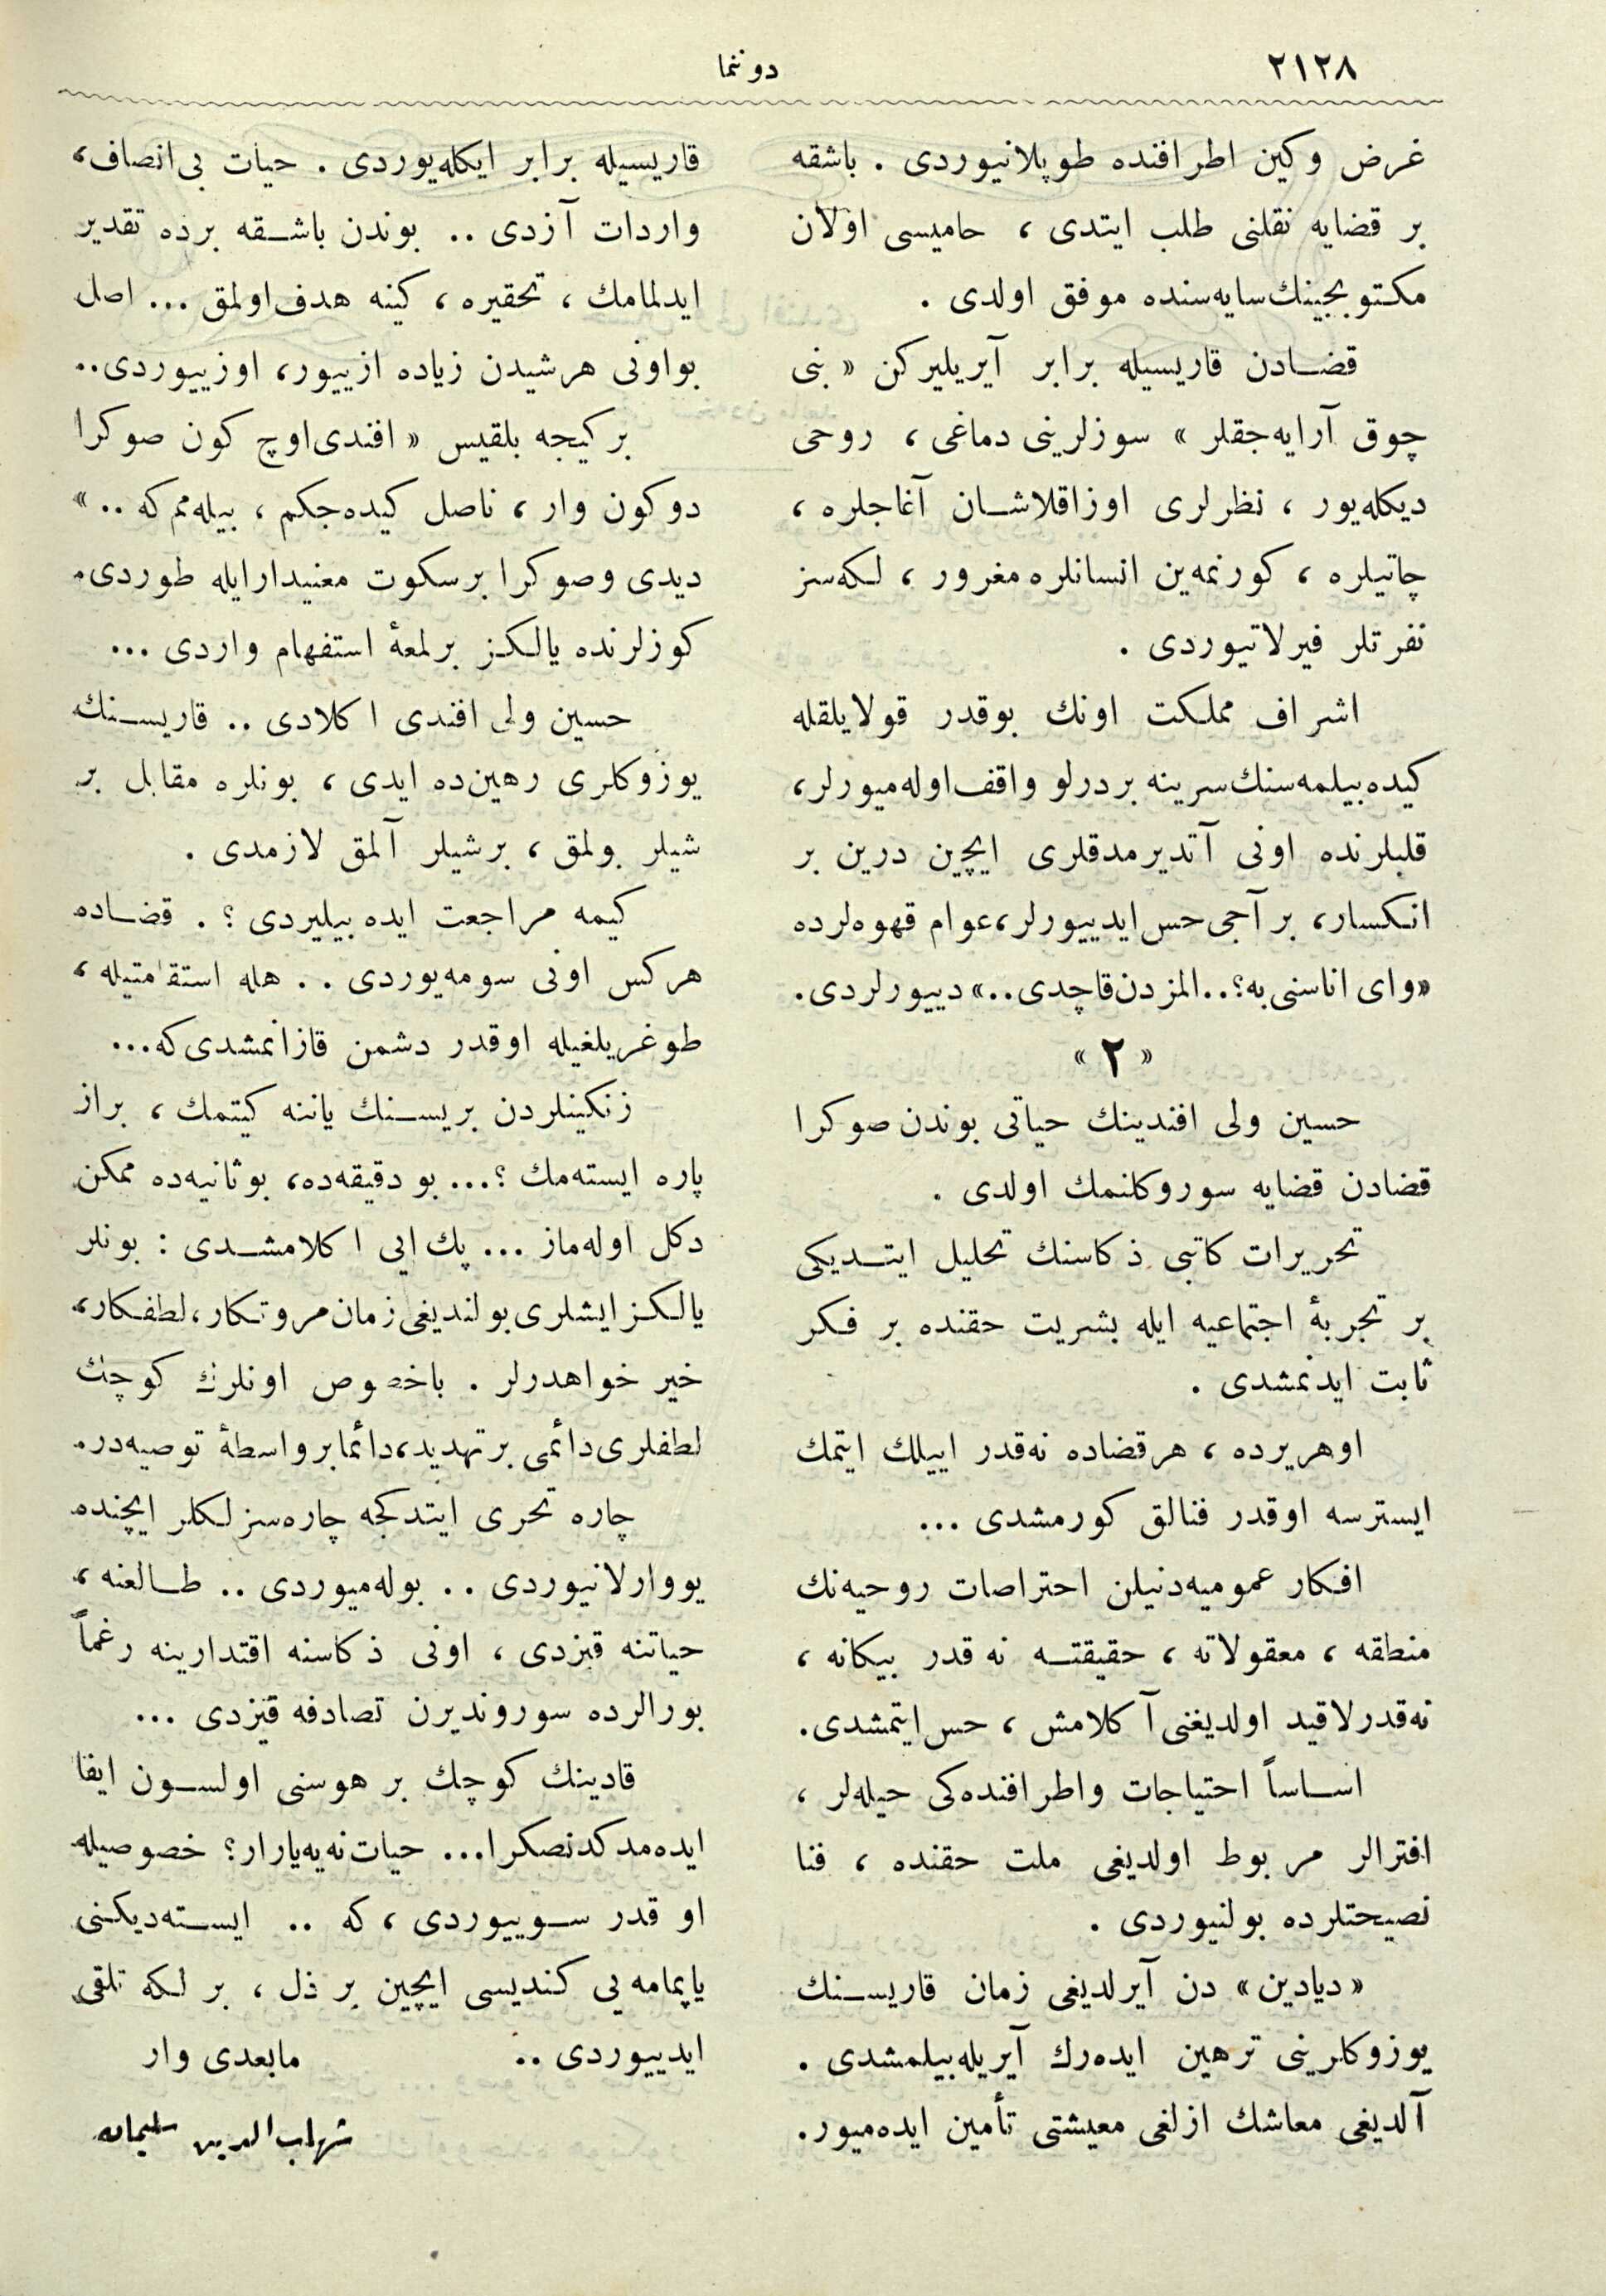 ٢١٢٨
دوننما
غرض وكين اطرافنده طوپلانيوردى . باشقه
بر قضايه نقلنى طلب ايتدى ، حاميسى اولان
مكتوبجينك سايه‌سنده موفق اولدى .
قضادن قاريسيله برابر آيريليركن « بنى
چوق آرايه‌جقلر » سوزلرينى دماغى ، روحى
ديكله‌يور ، نظرلرى اوزاقلاشان آغاجلره ،
چاتيلره ، كورنمه‌ين انسانلره مغرور ، لكه‌سز
نفرتلر فيرلاتيوردى .
اشراف مملكت اونك بوقدر قولايلقله
كيده‌بيلمه‌سنك سرينه بردرلو واقف اوله‌ميورلر،
قلبلرنده اونى آتديرمدقلرى ايچين درين بر
انكسار، بر آجى حس ايدييورلر، عوام قهوه‌لرده
«واى اناسنى به؟.. المزدن قاچدى..» دييورلردى.
« ٢ »
حسين ولى افندينك حياتى بوندن صوكرا
قضادن قضايه سوروكلنمك اولدى .
تحريرات كاتبى ذكاسنك تحليل ايتديكى
بر تجربهٔ اجتماعيه ايله بشريت حقنده بر فكر
ثابت ايدنمشدى .
اوهريرده ، هرقضاده نه‌قدر اييلك ايتمك
ايسترسه اوقدر فنالق كورمشدى ...
افكار عموميه‌دنيلن احتراصات روحيه‌نك
منطقه ، معقولاته ، حقيقته نه قدر بيكانه ،
نه‌قدر لاقيد اولديغنى آكلامش ، حس ايتمشدى.
اساساً احتياجات واطرافنده‌كى حيله‌لر ،
افترالر مربوط اولديغى ملت حقنده ، فنا
نصيحتلرده بولنيوردى .
« ديادين » دن آيرلديغى زمان قاريسنك
يوزوكلرينى ترهين ايده‌رك آيريله‌بيلمشدى .
آلديغى معاشك ازلغى معيشتى تأمين ايده‌ميور.
قاريسيله برابر ايكله‌يوردى . حيات بى‌انصاف،
واردات آزدى .. بوندن باشقه برده تقدير
ايدلمامك ، تحقيره ، كينه هدف اولمق ... اصل
بواونى هرشيدن زياده ازييور، اوزييوردى..
بر كيجه بلقيس « افندى اوچ كون صوكرا
دوكون وار ، ناصل كيده‌جكم ، بيله‌مم كه .. »
ديدى وصوكرا برسكوت معنيدارايله طوردى.
كوزلرنده يالكز برلمعهٔ استفهام واردى ...
حسين ولى افندى اكلادى .. قاريسنك
يوزوكلرى رهين‌ده ايدى ، بونلره مقابل بر
شيلر بولمق ، برشيلر آلمق لازمدى .
كيمه مراجعت ايده بيليردى ؟ . قضاده
هركس اونى سومه‌يوردى . . هله استقامتيله ،
طوغريلغيله اوقدر دشمن قازانمشدى كه...
زنكينلردن بريسنك ياننه كيتمك ، براز
پاره ايسته‌مك ؟... بو دقيقه‌ده، بوثانيه‌ده ممكن
دكل اوله‌ماز ... پك ايى اكلامشدى : بونلر
يالكز ايشلرى بولنديغى زمان مروتكار، لطفكار،
خير خواهدرلر . باخصوص اونلرك كوچك
لطفلرى دائمى برتهديد، دائما برواسطهٔ توصيه‌در.
چاره تحرى ايتدكجه چاره‌سزلكلر ايچنده
يووارلانيوردى .. بوله‌ميوردى .. طالعنه ،
حياتنه قيزدى ، اونى ذكاسنه اقتدارينه رغماً
بورالرده سورونديرن تصادفه قيزدى ...
قادينك كوچك بر هوسنى اولسون ايفا
ايده‌مدكدنصكرا... حيات نه‌يه‌يارار؟ خصوصيله
او قدر سوييوردى ، كه .. ايسته‌ديكنى
ياپمامه‌يى كنديسى ايچين بر ذل ، بر لكه تلقى
ايدييوردى ..
مابعدى وار
شهاب الدين سليمان